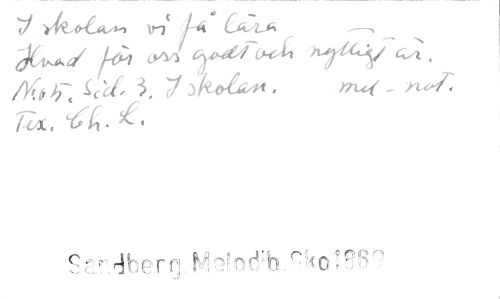 I skolan vi få lära
Hvad för oss godt och nyttigt är.
N:o 5. Sid. 3. I skolan. mel - not.
Tex. Ch. L.
Sandberg. Melodib. Sko 1869